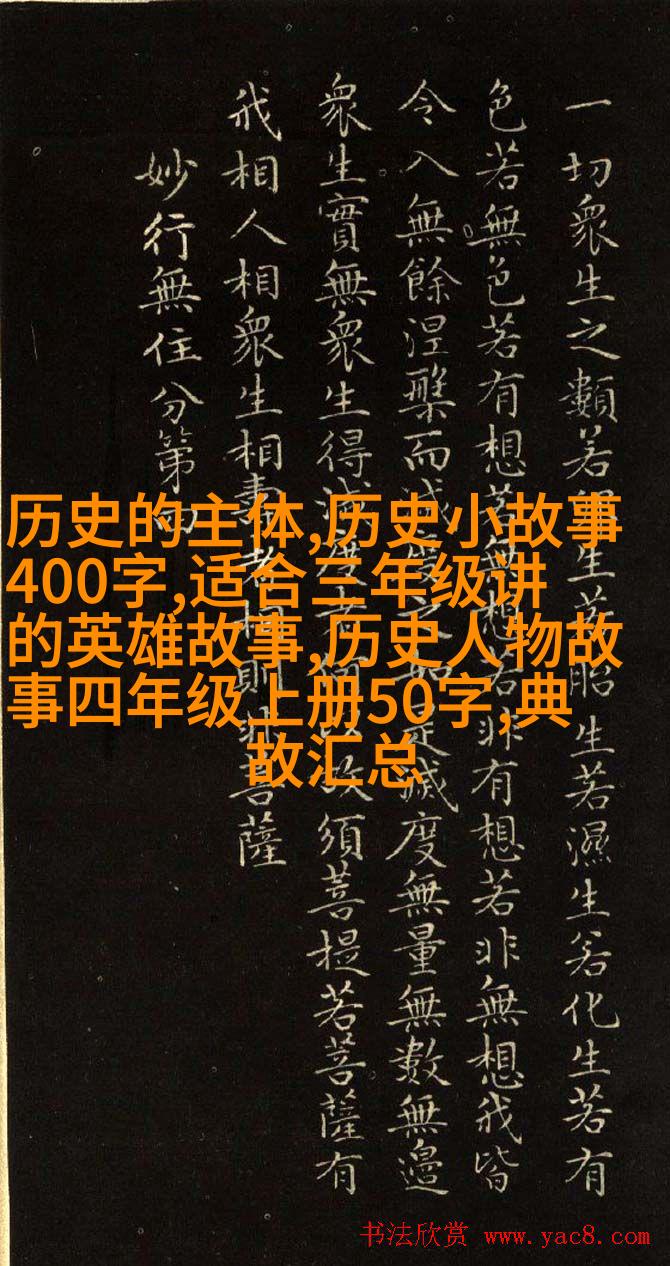 一切衆生之類若卵生若胎生若濕生若化生若有
色若無色若有想若無想若非有想若非無想我皆
令入無餘涅槃而滅度之如是滅度無量無數無邊
衆生實無衆生得滅度者何以故須菩提若菩薩有
我相人相衆生相壽者相則非菩薩
妙行無住分第四
历史的主体,历史小故事
400字,适合三年级讲
的英雄故事,历史人物故
事四年级上册50字,典
故汇总
书法欣赏 www.yac8.com